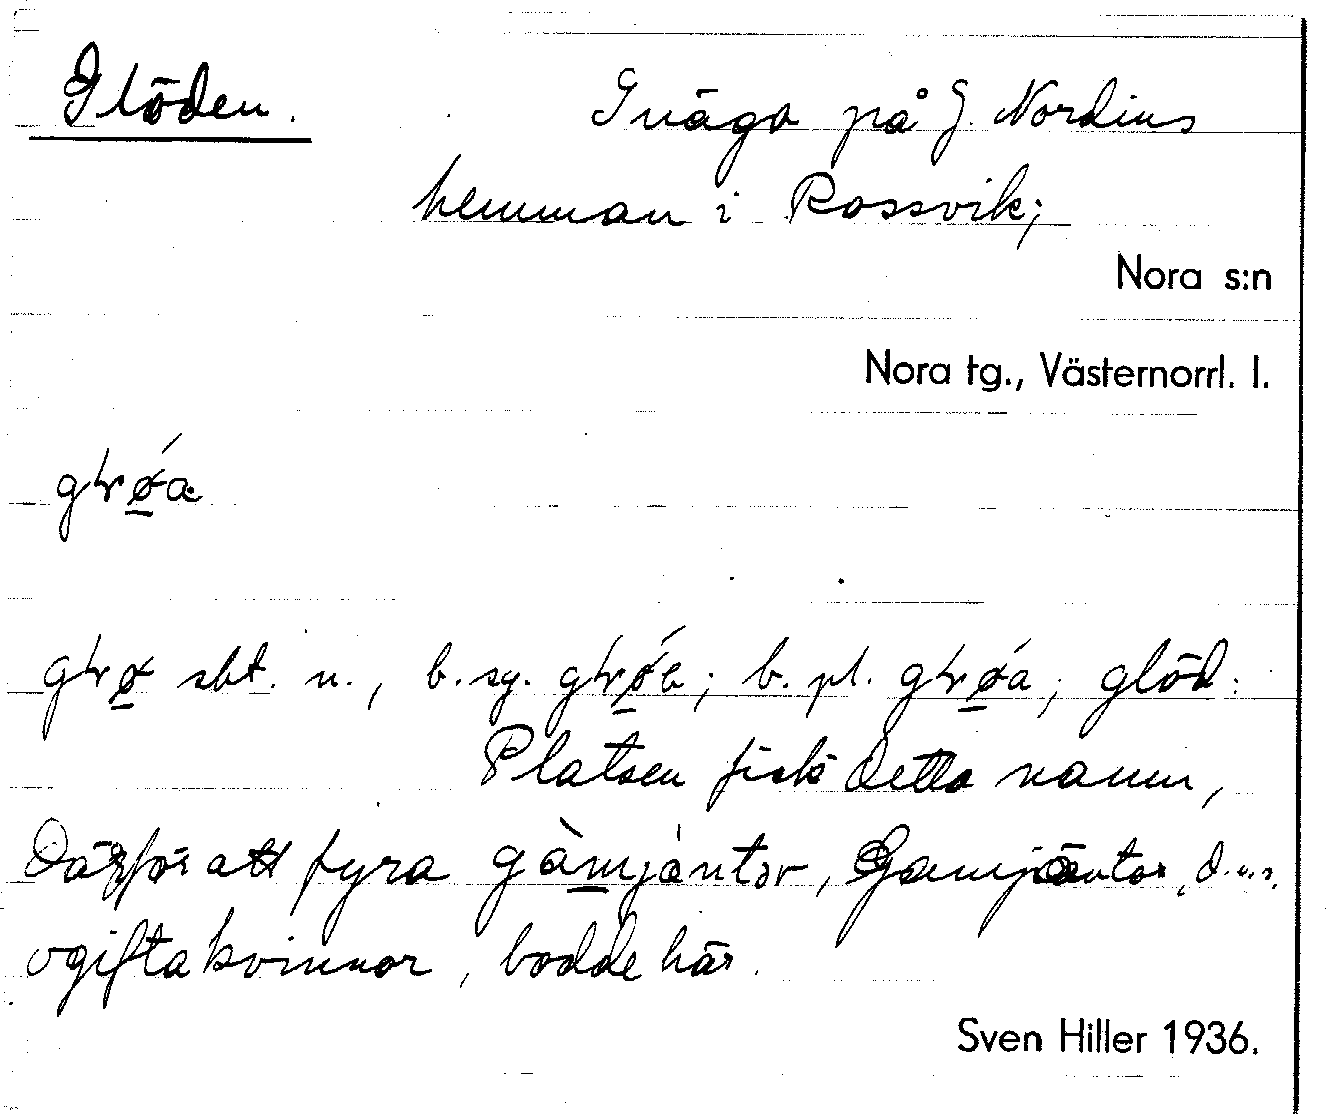 Glöden. Inäga på J. Nordins
hemman i Rossvik;
Nora s:n
Nora tg., Västernorrl. l.
sbt. n., b. sg. b. pl. glöd.
Platsen fick detta namn,
därför att fyra gàmjäntər, Gamjäntor, d.v.s.
ogifta kvinnor, bodde här.
Sven Hiller 1936.